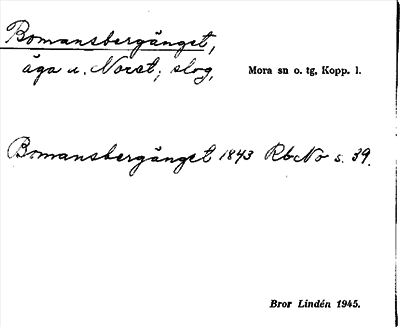 Bomansbergänget,
äga u. Norst; slog, Mora sn o. tg, Kopp. l.
Bomansbergänget 1843 RbNo s. 39.
Bror Lindén 1945.